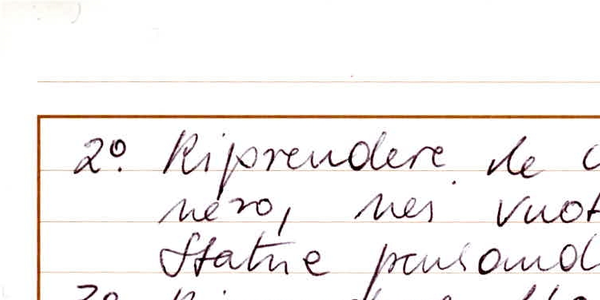 2º. Riprendere le
nero, nei vuot
Statue pensand